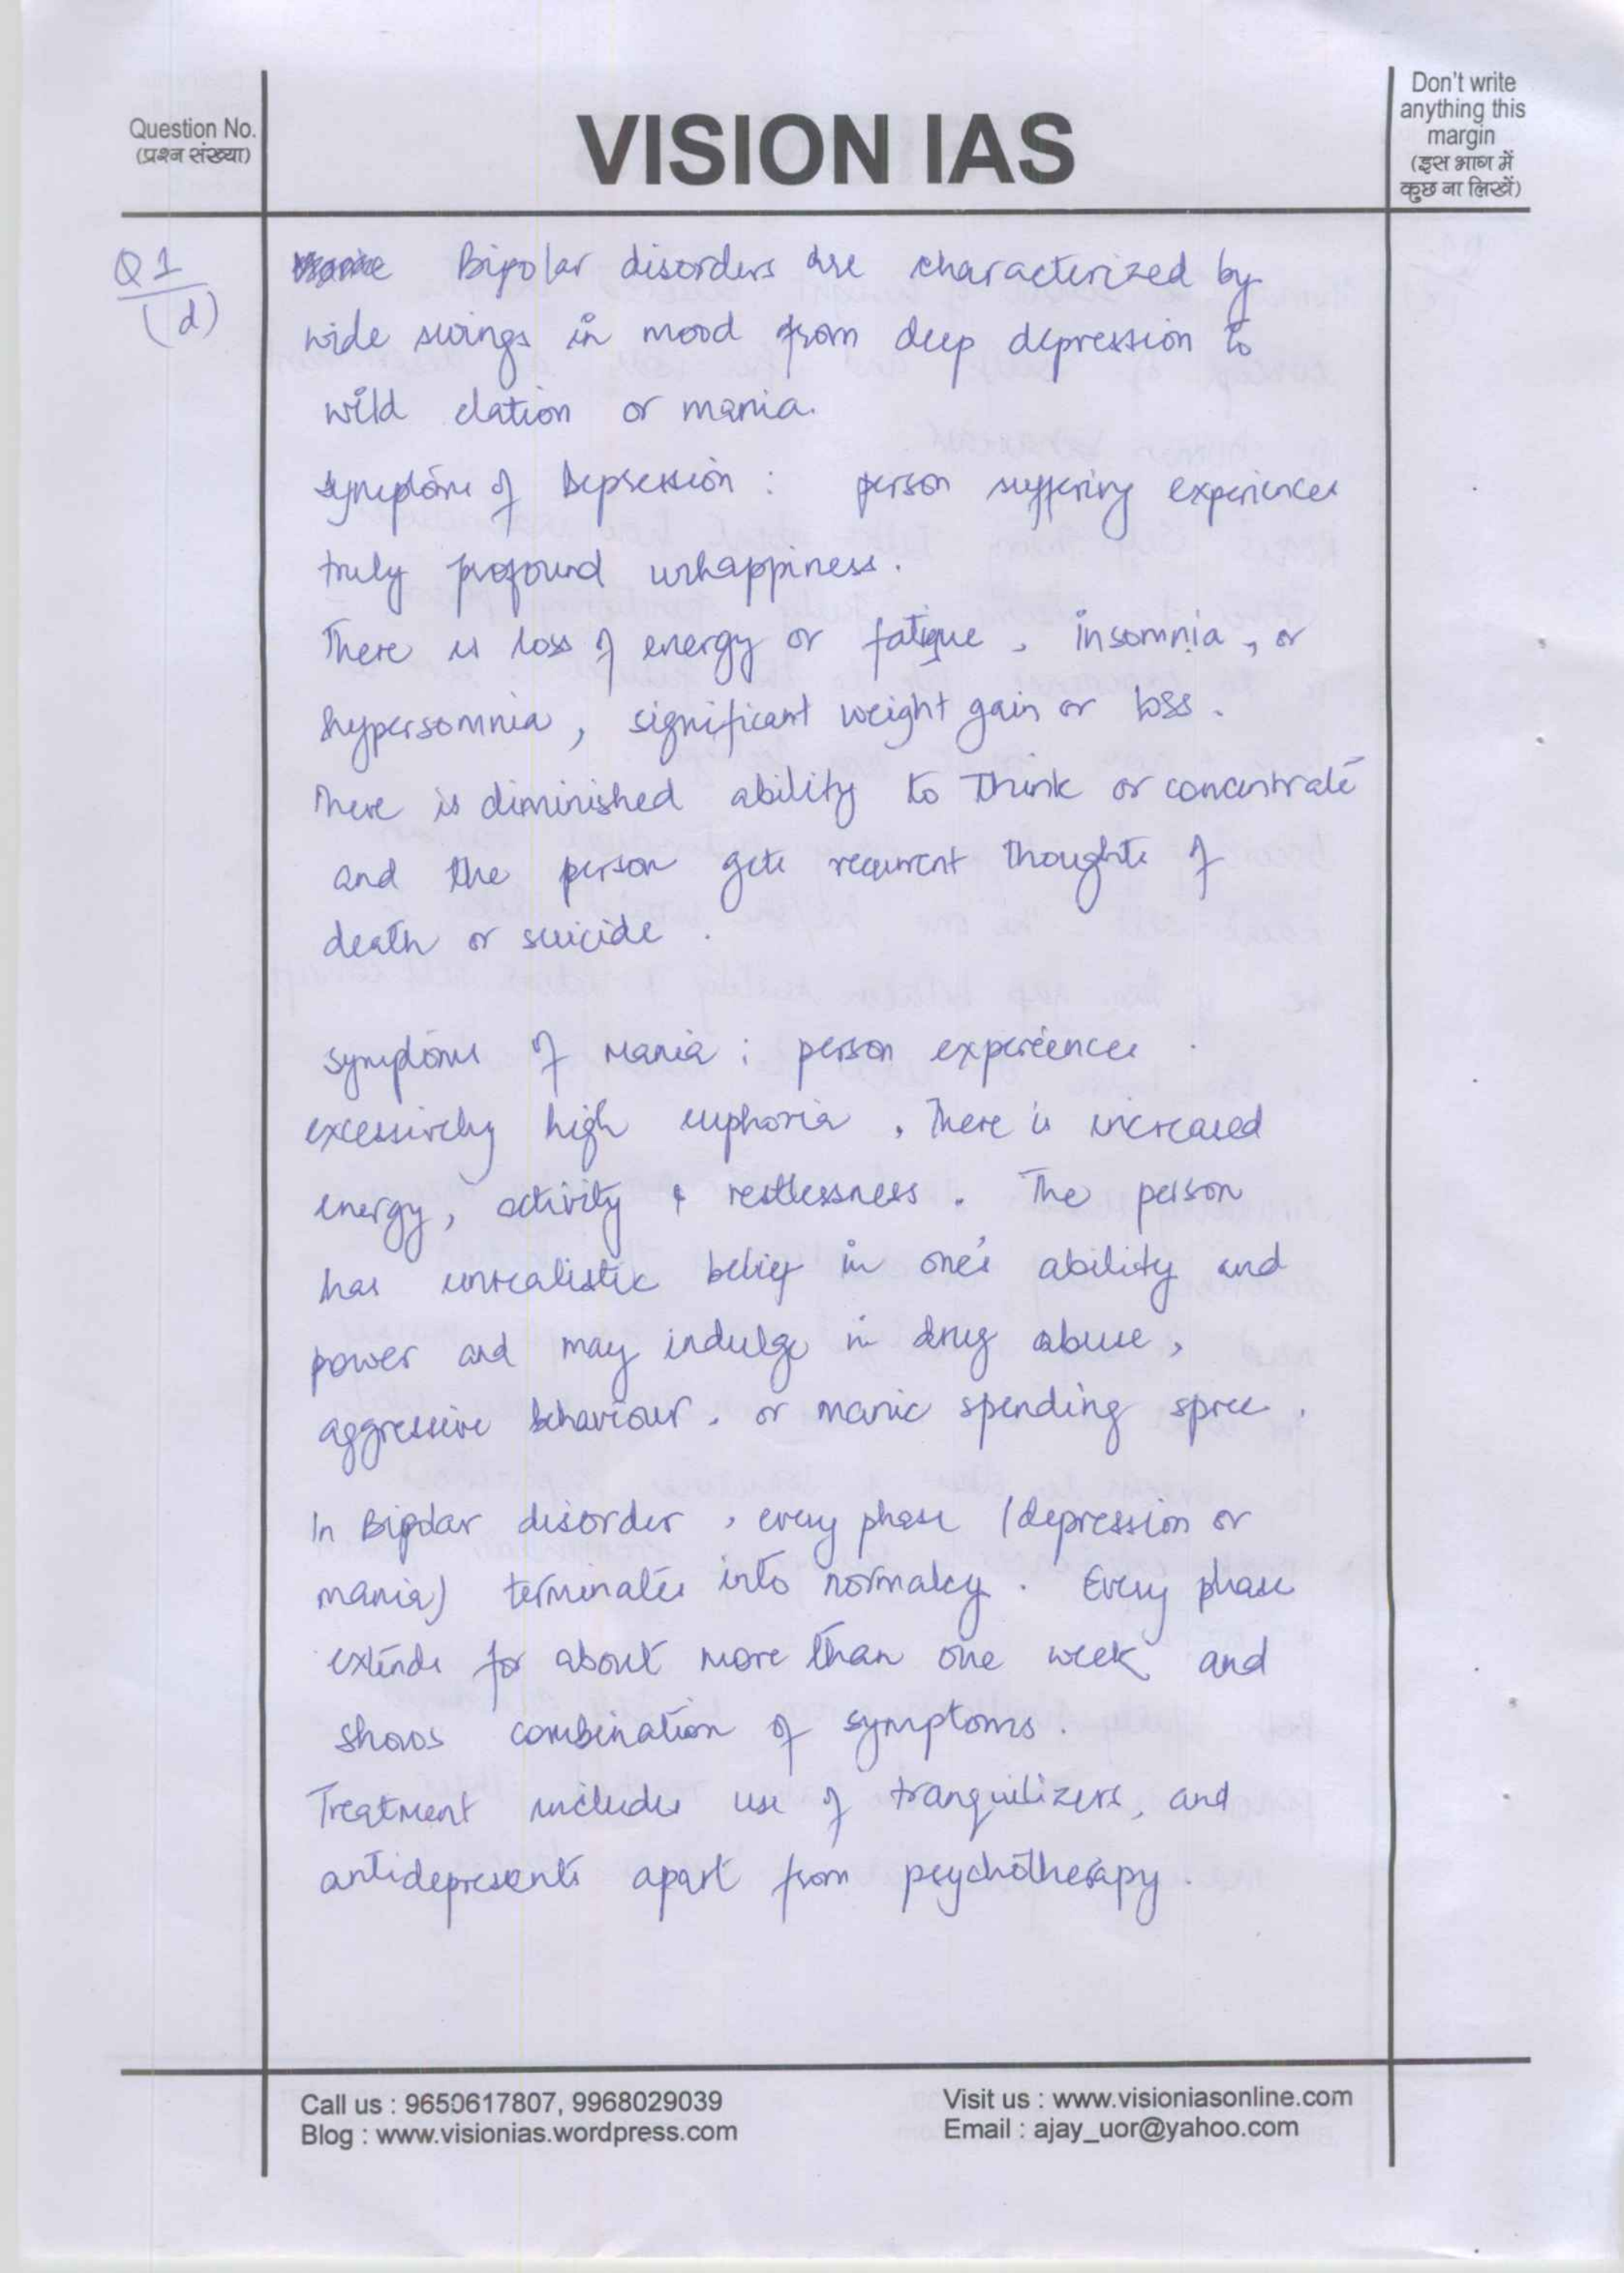 Question No.
(प्रश्न संख्या)
VISION IAS
Don't write
anything this
margin
(इस भाग में
कुछ ना लिखें)
Q1
(d)
Bipolar disorders are characterized by
wide swings in mood from deep depression to
wild elation or mania.
Symptoms of Depsession : person suffering experiences
truly profound unhappiness.
There is loss of energy or fatigue, insomnia, or
hypersomnia, significant weight gain or loss.
There is diminished ability to think or concentrate
and the person gets recurrent thoughts of
death or suicide.
symptoms of Mania : person experiences
excessively high euphoria, There is increased
energy, activity & restlessness. The person
has unrealistic belief in one's ability and
power and may indulge in drug abuse,
aggressive behaviour, or manic spending spree.
In Bipolar disorder, every phase (depression or
mania) terminates into normalcy. Every phase
extends for about more than one week and
shows combination of symptoms.
Treatment includes use of tranquilizers, and
antidepresents apart from psychotherapy.
Call us : 9650617807, 9968029039
Blog : www.visionias.wordpress.com
Visit us : www.visioniasonline.com
Email : ajay_uor@yahoo.com